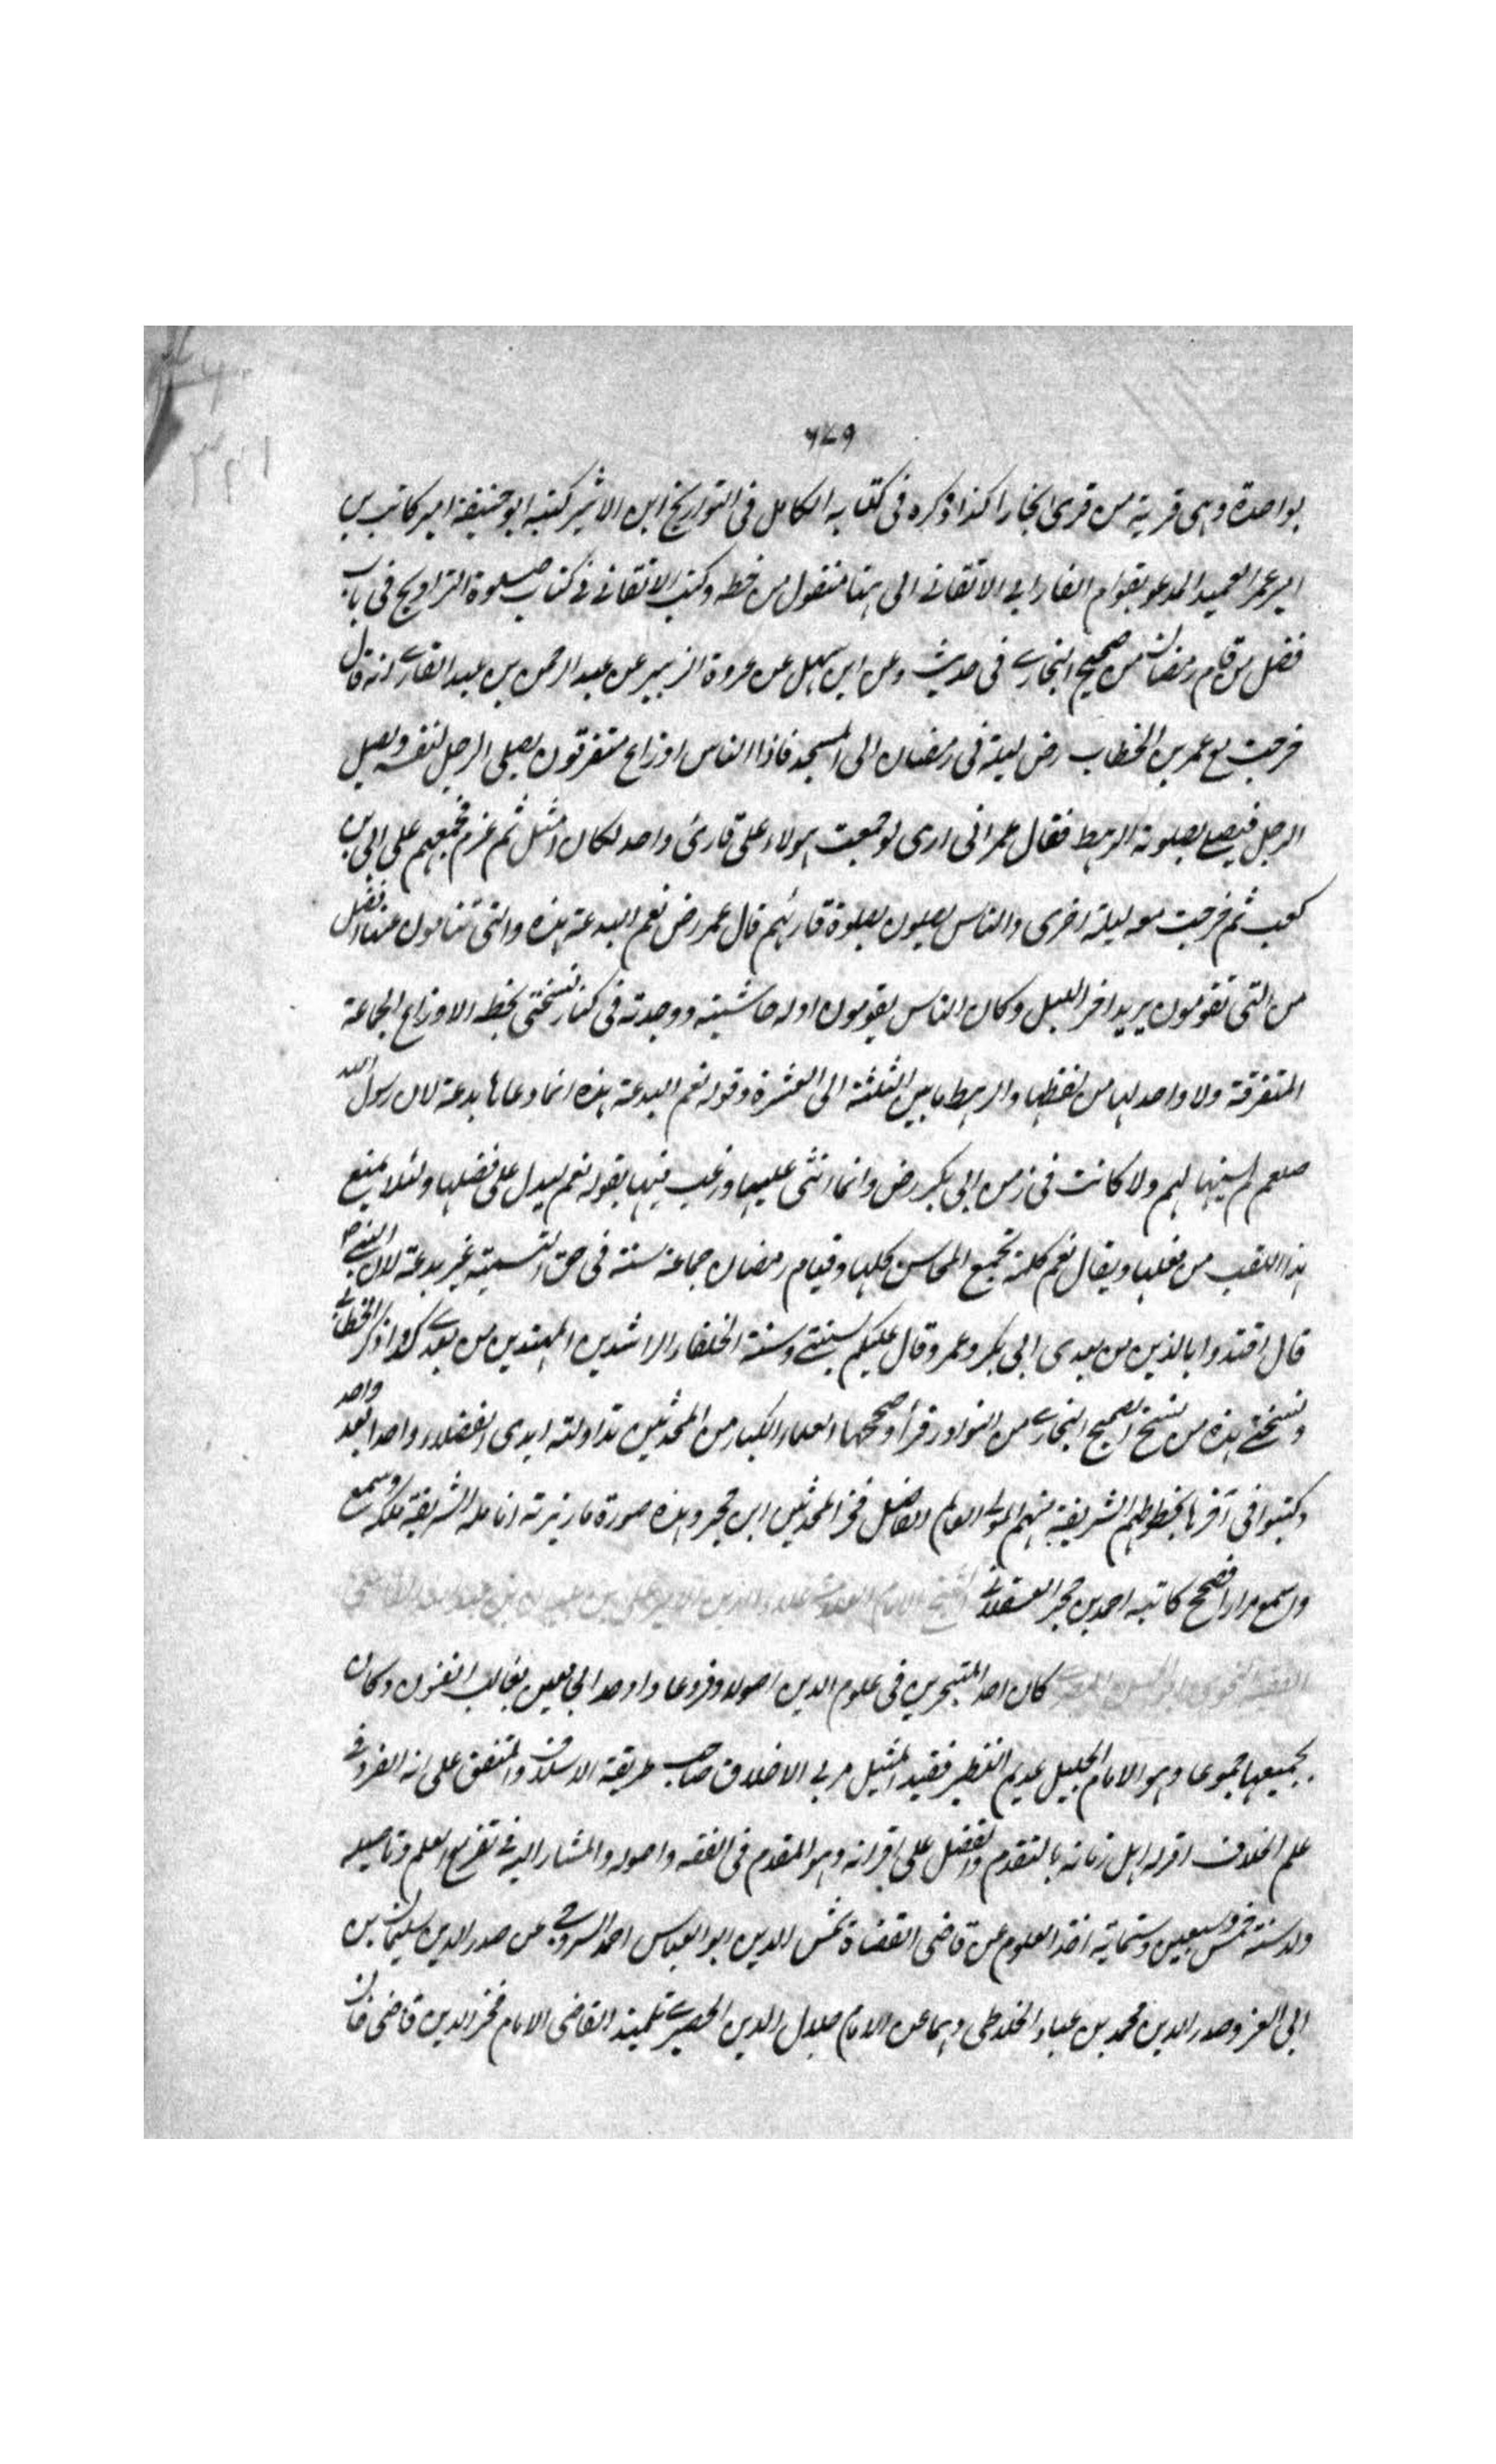 ٦٧٩
بواحدة وهى قرية من قرى بخارا كذا ذكره فى كتابه الكامل فى التواريخ ابن الاثير كتبه ابو حنيفة امير كاتب بن
امير عمر العميد المدعو بقوام الفارابى الاتقانى الى هنا منقول من خطه وكتب الاتقانى فى كتاب صلوة التراويح فى باب
فضل من قام رمضان من صحيح البخارى فى حديث وعن ابن عن عروة الزبير عن عبد الرحمن بن عبد القارى انه قال
خرجت مع عمر بن الخطاب رض ليلة فى رمضان الى المسجد فاذا الناس اوزاع متفرقون يصلى الرجل لنفسه ويصلى
الرجل فيصلى بصلوته الرهط فقال عمر انى ارى لو جمعت هولاء على قارئ واحد لكان امثل ثم عزم فجمعهم على ابى بن
كعب ثم خرجت معه ليلة اخرى والناس يصلون بصلوة قارئهم قال عمر رض نعم البدعة هذه والتى تنامون عنها افضل
من التى تقومون يريد اخر الليل وكان الناس يقومون اوله حاشيته ووجدته فى كنار نسختى بخطه الاوزاع الجماعة
المتفرقة ولا واحد لها من لفظها والرهط ما بين الثلثة الى العشرة وقوله نعم البدعة هذه انما دعاها بدعة لان رسول الله
صلعم لم يسنها لهم ولا كانت فى زمن ابى بكر رض وانما اثنى عليها ورغب فيها بقوله نعم ليدل على فضلها ولئلا يمنع
هذا اللقب من فعلها ويقال نعم كلمة تجمع المحاسن كلها وقيام رمضان جماعة سنة فى حق التسمية غير بدعة لان النبى ص
قال اقتدوا بالذين من بعدى ابى بكر وعمر وقال عليكم بسنتى وسنة الخلفاء الراشدين المهتدين من بعدى كذا ذكر الخطابى
ونسختى هذه من نسخ الصحيح البخارى من النوادر قرأ وصححها العلماء الكبار من المحدثين تداولته ايدى الفضلاء واحدا بعد واحد
وكتبوا فى آخرها بخطوطهم الشريفة منهم المولى العالم الفاضل فخر المحدثين ابن حجر وهذه صورة ما زبرته انامله الشريفة ملكه وسمع
واسمع مرارا فصح كاتبه احمد بن حجر العسقلانى الشيخ الامام
كان احد المتبحرين فى علوم الدين اصولا وفروعا واوحد الجامعين بغالب الفنون وكان
بجميعها جموعا وهو الامام الجليل عديم النظير فقيد المثيل مربى الاخلاق صاحب طريقة الاسلاف والمتفق على انه الفرد فى
علم الخلاف اقر له اهل زمانه بالتقدم والفضل على اقرانه وهو المقدم فى الفقه واصوله والمشار اليه فى تفريع العلم وتاصيله
ولد سنة خمس وسبعين وستمائة اخذ العلوم عن قاضى القضاة شمس الدين ابو العباس احمد السروجى عن صدر الدين سليمان بن
ابى العز وصدر الدين محمد بن عباد الخلاطى وهما عن الامام جلال الدين الحصيرى تلميذ القاضى الامام فخر الدين قاضى خان